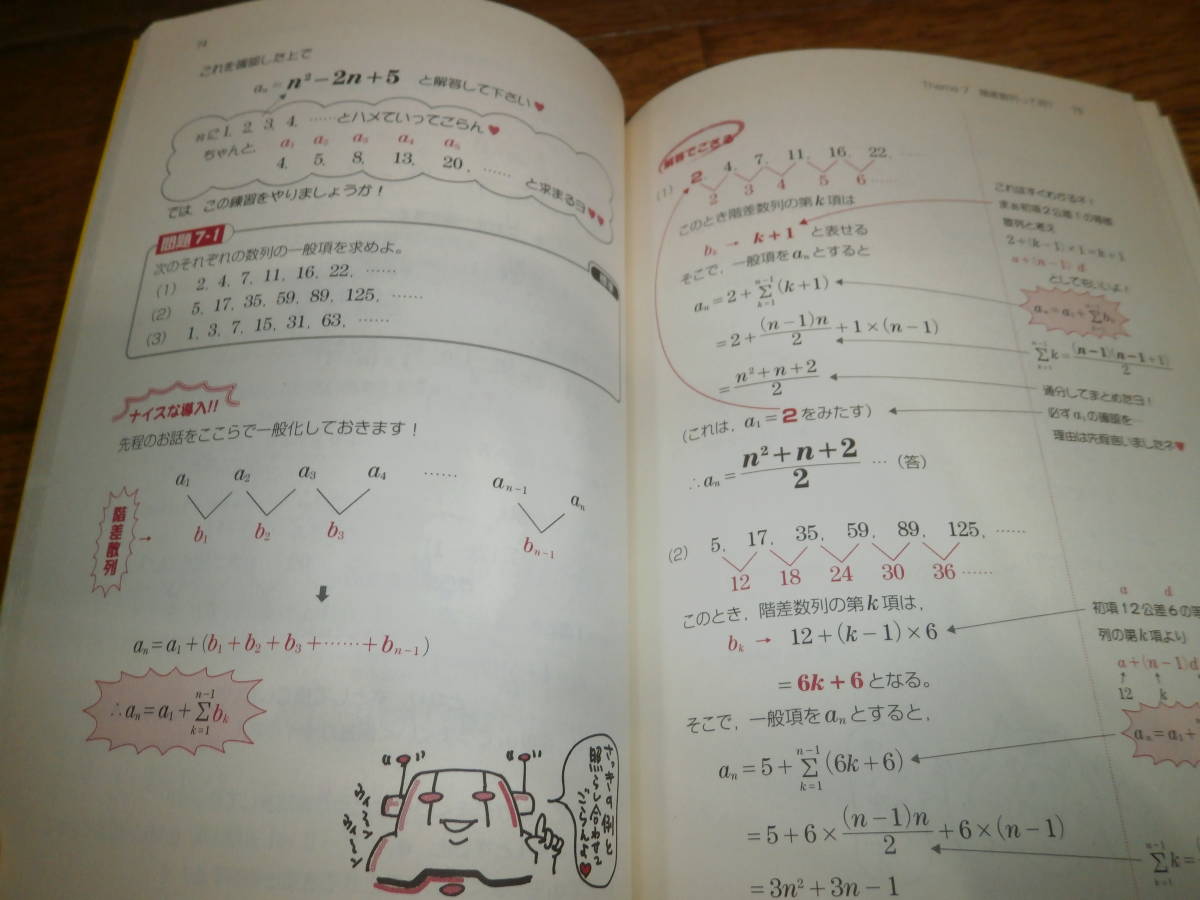 74
これを確認した上で
aₙ = n² − 2n + 5 と解答して下さい♥
nに1, 2, 3, 4, ……とハメていってごらん♥
ちゃんと, a₁ a₂ a₃ a₄ a₅
4, 5, 8, 13, 20, …… と求まるヨ♥♥
では, この練習をやりましょうか!
問題 7-1
次のそれぞれの数列の一般項を求めよ。
(1) 2, 4, 7, 11, 16, 22, ……
(2) 5, 17, 35, 59, 89, 125, ……
(3) 1, 3, 7, 15, 31, 63, ……
ナイスな導入!!
先程のお話をここらで一般化しておきます!
a₁ a₂ a₃ a₄ …… aₙ₋₁ aₙ
階差数列 → b₁ b₂ b₃ bₙ₋₁
aₙ = a₁ + (b₁ + b₂ + b₃ + …… + bₙ₋₁)
∴ aₙ = a₁ + Σ[k=1, n−1] bₖ
さっきの例と
照らし合わせて
ごらんよ♥
ウィーン
ウィーン
Theme 7 階差数列って何? 75
解答でござる
(1) 2, 4, 7, 11, 16, 22, ……
2 3 4 5 6 ……
このとき階差数列の第k項は
bₖ → k+1 と表せる
そこで, 一般項をaₙとすると
aₙ = 2 + Σ[k=1, n−1] (k+1)
= 2 + (n−1)n/2 + 1×(n−1)
= (n²+n+2)/2
(これは, a₁ = 2 をみたす)
∴ aₙ = (n²+n+2)/2 … (答)
これはすぐわかるネ!
まぁ初項2公差1の等差
数列と考え
2+(k−1)×1=k+1
a+(n−1) d
としてもいいよ!
aₙ = a₁ + Σ bₖ
Σ[k=1, n−1] k = (n−1)(n−1+1)/2
通分してまとめたヨ!
必ずa₁の確認を…
理由は先程言いましたネ♥
(2) 5, 17, 35, 59, 89, 125, ……
12 18 24 30 36 ……
このとき, 階差数列の第k項は,
bₖ → 12+(k−1)×6
= 6k+6 となる。
そこで, 一般項をaₙとすると,
aₙ = 5 + Σ[k=1, n−1] (6k+6)
= 5 + 6 × (n−1)n/2 + 6×(n−1)
= 3n² + 3n − 1
a d
初項12公差6の等
列の第k項より
a+(n−1)d
12 k
aₙ = a₁ +
Σ[k=1, n−1] k =